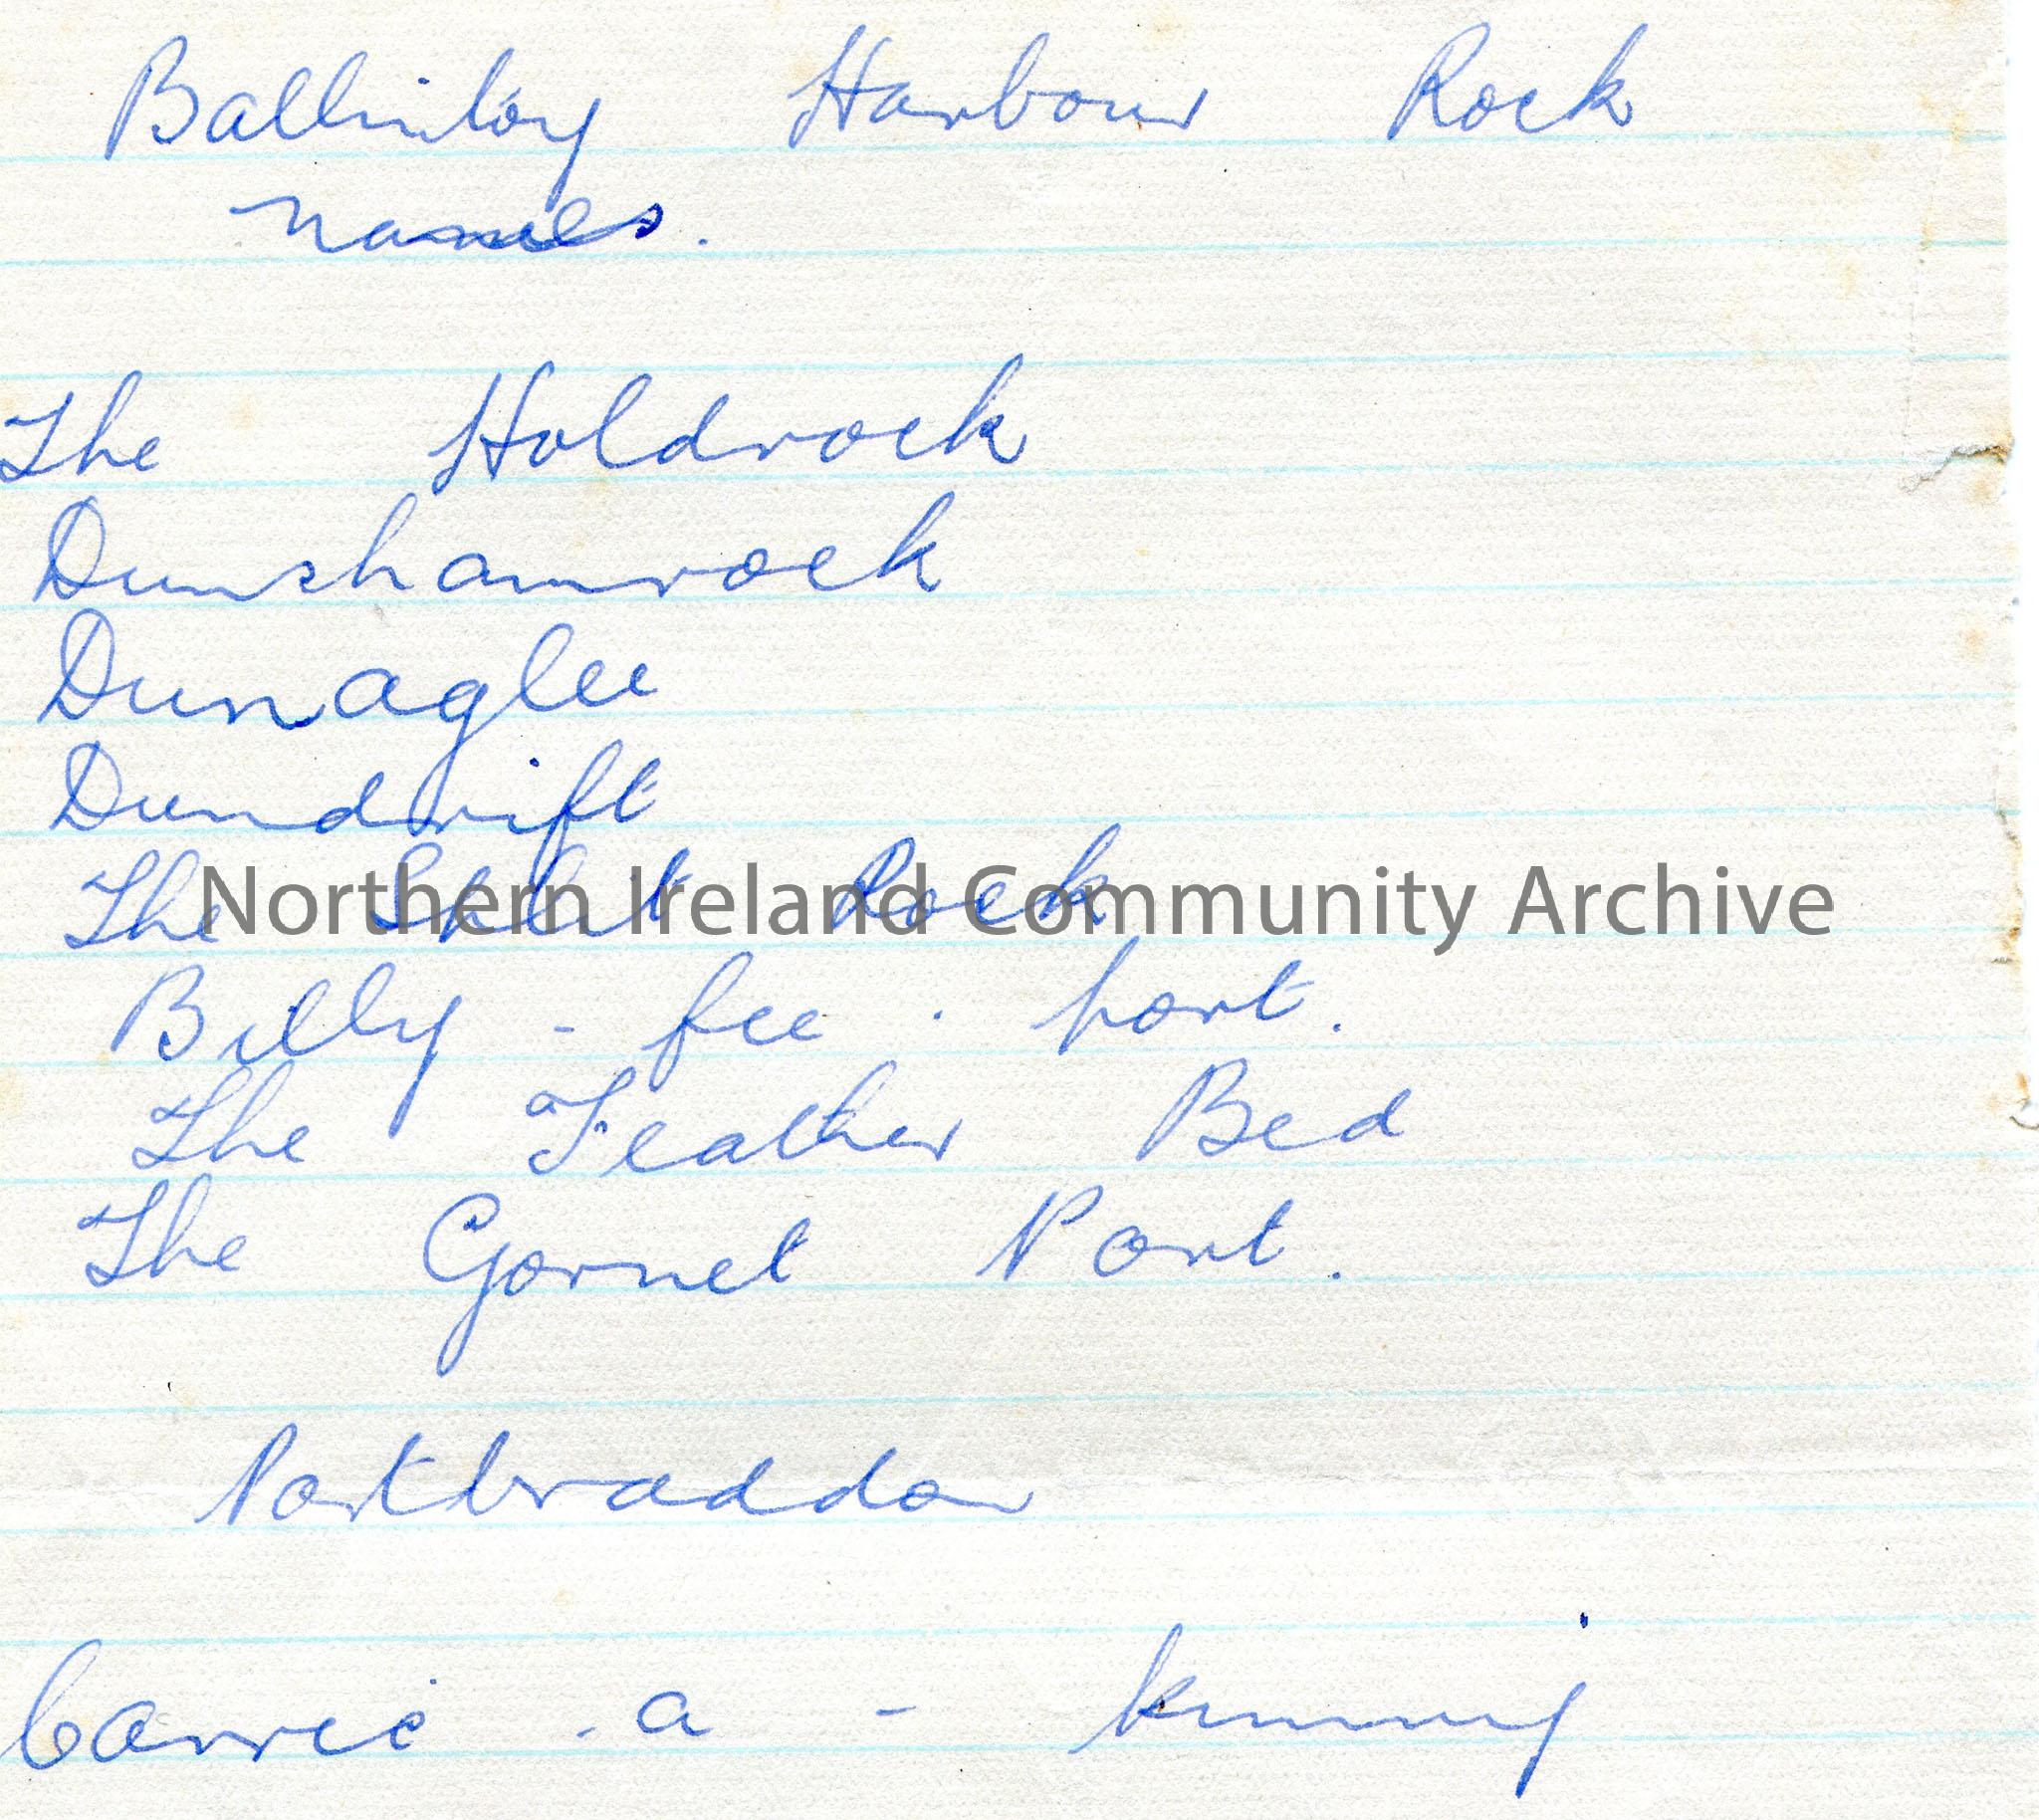 Ballintoy Harbour Rock
names.
The Holdrock
Dunshamrock
Dunaglee
Dundrift
The Sklit Rock
Northern Ireland Community Archive
Billy - fee - port.
The Feather Bed
The Gornet Port.
Portbraddon
Carric - a -